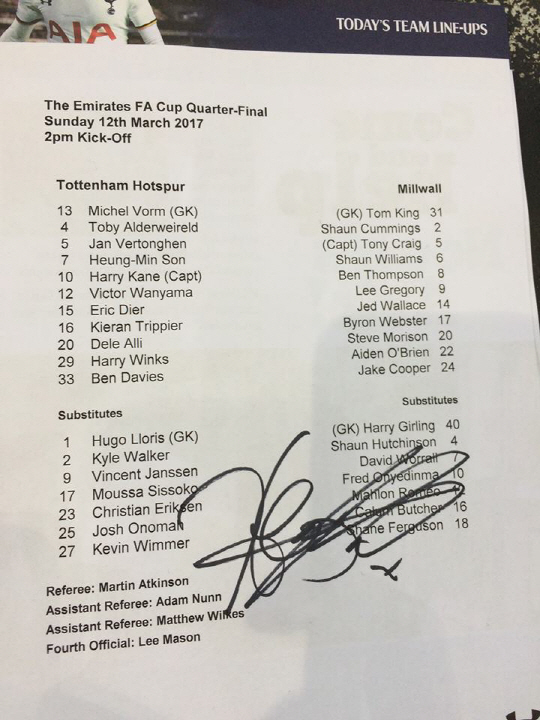 AIA
TODAY'S TEAM LINE-UPS
The Emirates FA Cup Quarter-Final
Sunday 12th March 2017
2pm Kick-Off
Tottenham Hotspur
13 Michel Vorm (GK)
4 Toby Alderweireld
5 Jan Vertonghen
7 Heung-Min Son
10 Harry Kane (Capt)
12 Victor Wanyama
15 Eric Dier
16 Kieran Trippier
20 Dele Alli
29 Harry Winks
33 Ben Davies
Substitutes
1 Hugo Lloris (GK)
2 Kyle Walker
9 Vincent Janssen
17 Moussa Sissoko
23 Christian Eriksen
25 Josh Onomah
27 Kevin Wimmer
Referee: Martin Atkinson
Assistant Referee: Adam Nunn
Assistant Referee: Matthew Wilkes
Fourth Official: Lee Mason
Millwall
(GK) Tom King 31
Shaun Cummings 2
(Capt) Tony Craig 5
Shaun Williams 6
Ben Thompson 8
Lee Gregory 9
Jed Wallace 14
Byron Webster 17
Steve Morison 20
Aiden O'Brien 22
Jake Cooper 24
Substitutes
(GK) Harry Girling 40
Shaun Hutchinson 4
David Worrall 7
Fred Onyedinma 10
Mahlon Romeo 12
Calum Butcher 16
Shane Ferguson 18